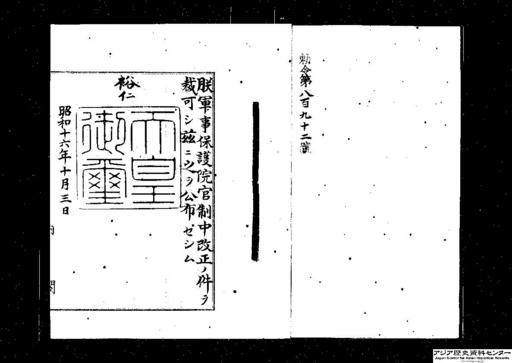 勅令第八百九十二號
朕軍事保護院官制中改正ノ件ヲ
裁可シ茲ニ之ヲ公布セシム
裕仁
天皇
御璽
昭和十六年十月三日
内閣
アジア歴史資料センター
Japan Center for Asian Historical Records